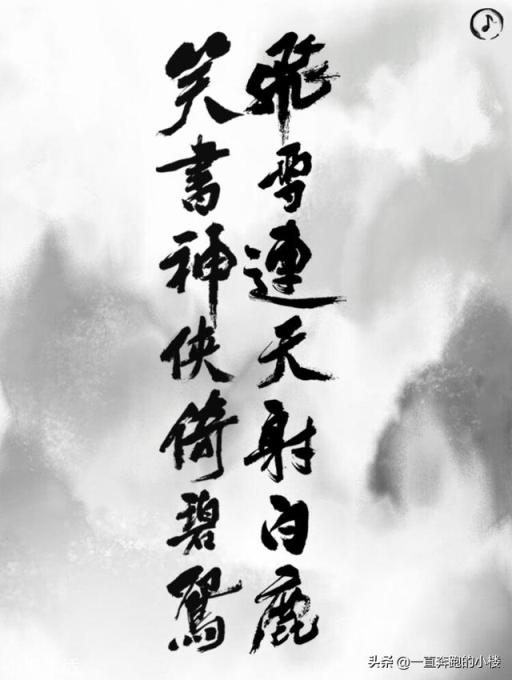 飛雪連天射白鹿
笑書神侠倚碧鴛
头条 @一直奔跑的小楼